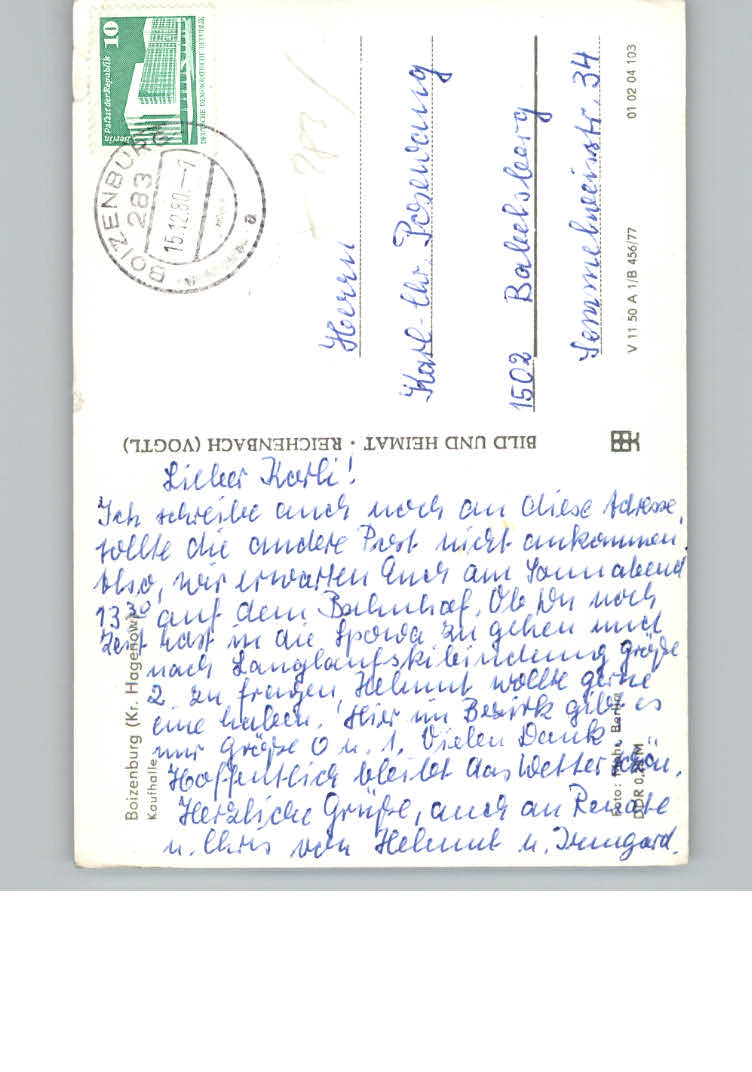 Lieber Karli!
Ich schreibe auch noch an diese Adresse,
sollte die andere Post nicht ankommen.
Also, wir erwarten Euch am Sonnabend
13³⁰ auf dem Bahnhof. Ob Du noch
Zeit hast in die Spowa zu gehen und
nach Langlaufskibindung Größe
2 zu fragen, Helmut wollte gerne
eine haben. Hier im Bezirk gibt es
nur Größe 0 u. 1. Vielen Dank
Hoffentlich bleibt das Wetter schön.
Herzliche Grüße, auch an Renate
u. Chris von Helmut u. Irmgard.
Boizenburg (Kr. Hagenow)
Kaufhalle
Foto: Berlin
DDR M
BILD UND HEIMAT · REICHENBACH (VOGTL)
Herrn
Karl-Chr. Posewang
1502 Babelsberg
Semmelweisstr. 34
V 11 50 A 1/B 456/77
01 02 04 103
10
Palast der Republik
Berlin
DEUTSCHE DEMOKRATISCHE REPUBLIK
BOIZENBURG
283
15.12.80.-7
a
283